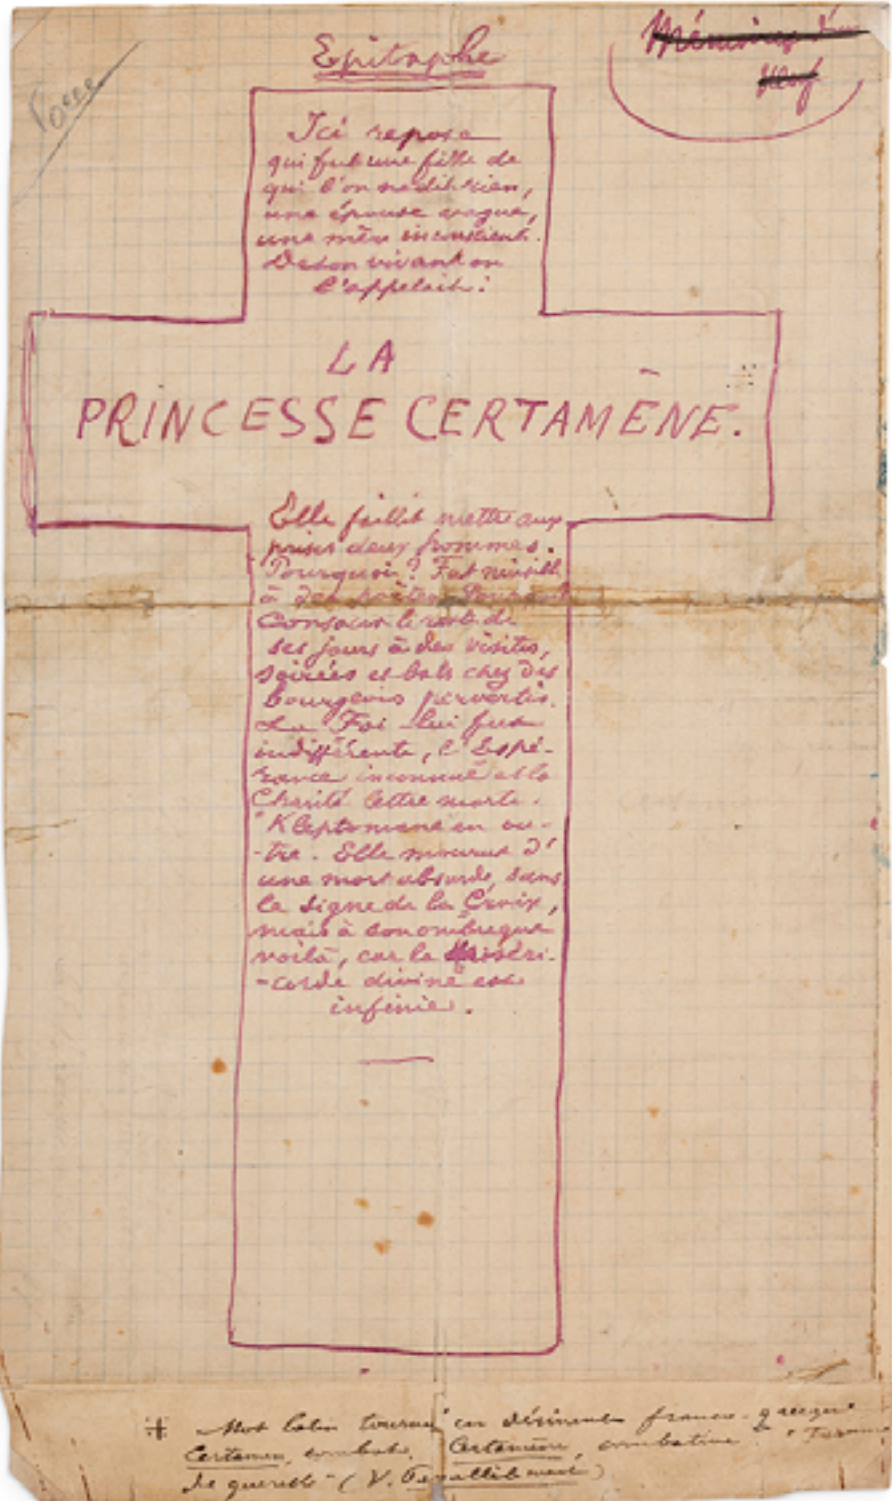 Epitaphe
Mémoires d'un
Veuf
Ici repose
qui fut une fille de
qui l'on ne dit rien,
une épouse vague,
une mère inconscient.
De son vivant on
l'appelait :
LA
PRINCESSE CERTAMÈNE.
Elle faillit mettre aux
prises deux hommes.
Pourquoi ? Fut
à des poètes
Consacra le reste de
ses jours à des visites,
soirées et bals chez des
bourgeois pervertis.
La Foi lui fut
indifférente, l'Espé-
rance inconnue et la
Charité lettre morte.
Kleptomane en ou-
-tre. Elle mourut d'
une mort absurde, sans
le signe de la Croix,
mais à son ombre que
voilà, car la Miséri-
-corde divine est
infinie.
Mot latin tourné en désinence franco-grecque
Certamen, combat. Certamène, combative.
de querelle (V.